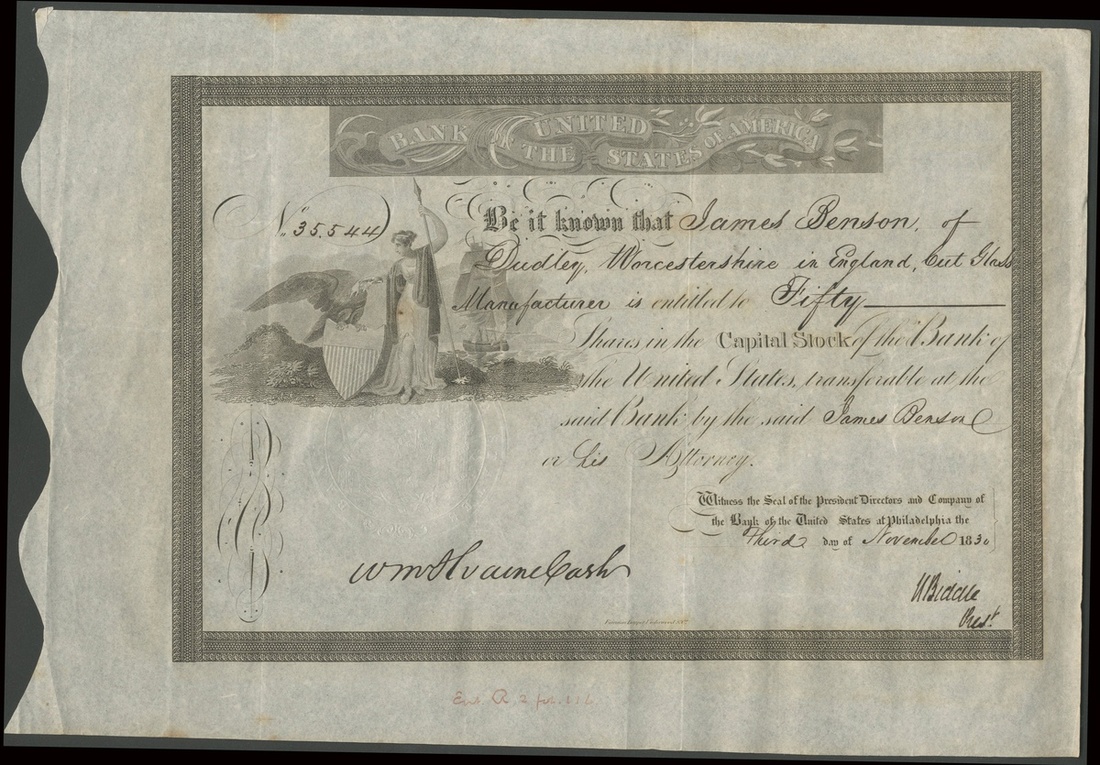 BANK OF THE UNITED STATES OF AMERICA
No. 35,544
Be it known that James Benson, of
Dudley, Worcestershire in England, Cut Glass
Manufacturer is entitled to Fifty
Shares in the Capital Stock of the Bank of
the United States, transferable at the
said Bank by the said James Benson
or his Attorney.
Witness the Seal of the President Directors and Company of
the Bank of the United States at Philadelphia the
Third day of November 1830
Wm McIlvaine Cash
N Biddle
Prest.